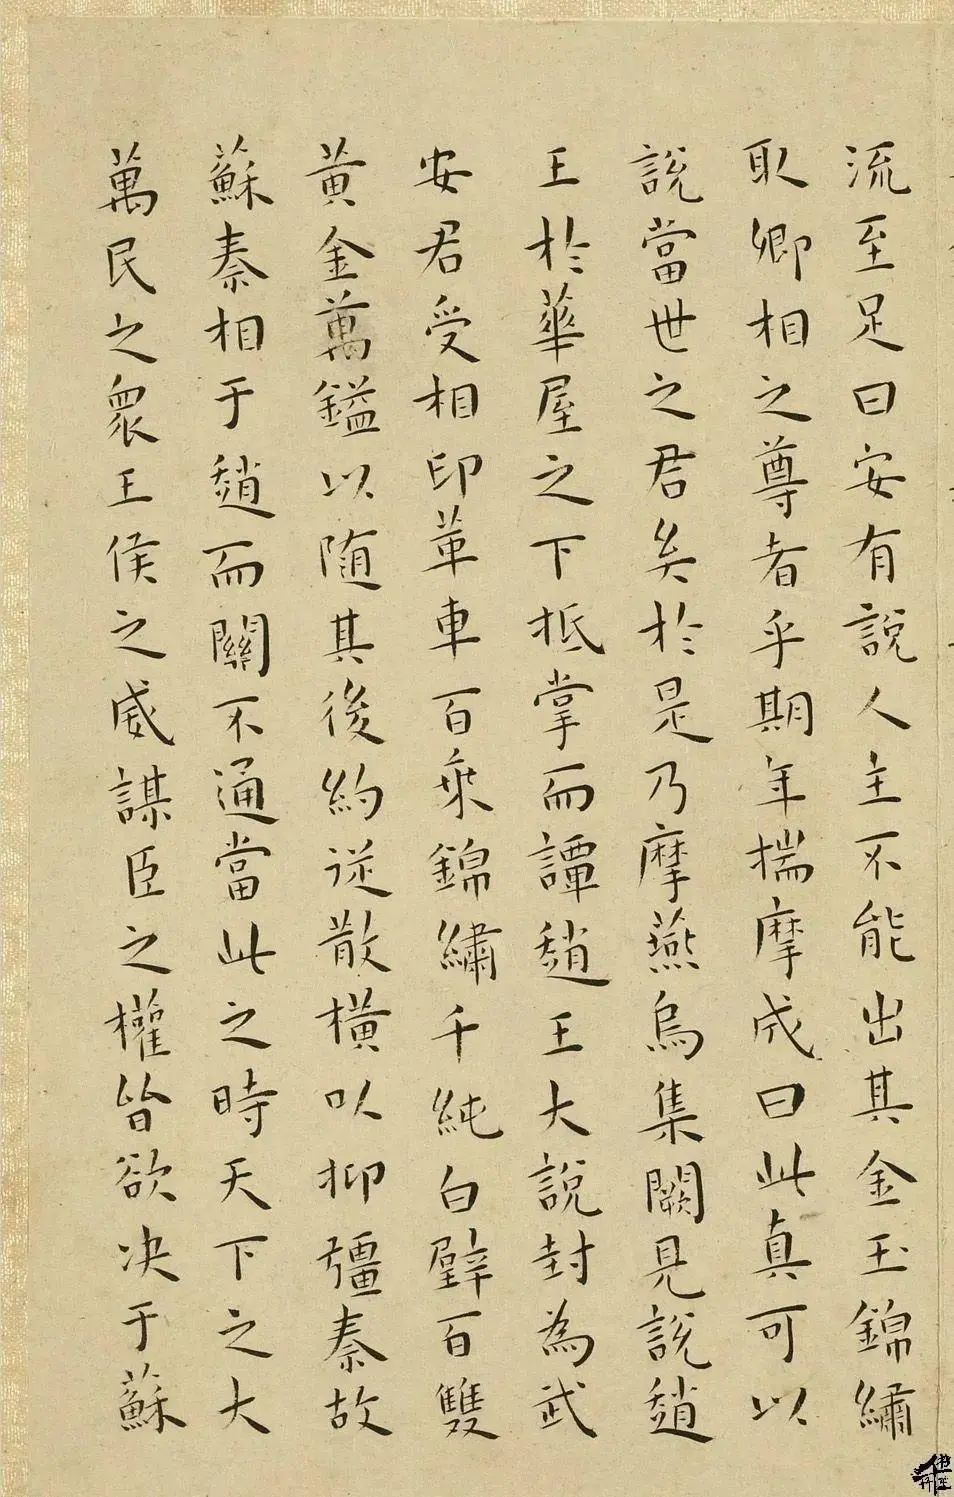 流至足曰安有說人主不能出其金玉錦繡
取卿相之尊者乎期年揣摩成曰此真可以
說當世之君矣於是乃摩燕烏集闕見說趙
王於華屋之下抵掌而譚趙王大說封為武
安君受相印革車百乘錦繡千純白璧百雙
黃金萬鎰以隨其後約從散橫以抑彊秦故
蘇秦相于趙而關不通當此之時天下之大
萬民之眾王侯之威謀臣之權皆欲決于蘇